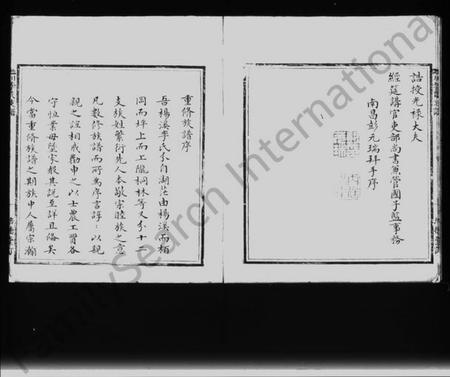 誥授光祿大夫
經筵講官吏部尚書兼管國子監事務
南昌彭元瑞拜手序
重修族譜序
吾楊溪李氏分自湖茫由楊溪而栢
岡而坪上而工隴桐林等又分十二
支族姓繁衍先人本敬宗睦族之意
凡數修族譜而所為序言諄諄以親
親之誼相戒勗申之以士農工習各
守恒業毋墜家聲其說至詳且備矣
今當重修族譜之期族中人屬宗瀚
FamilySearch International